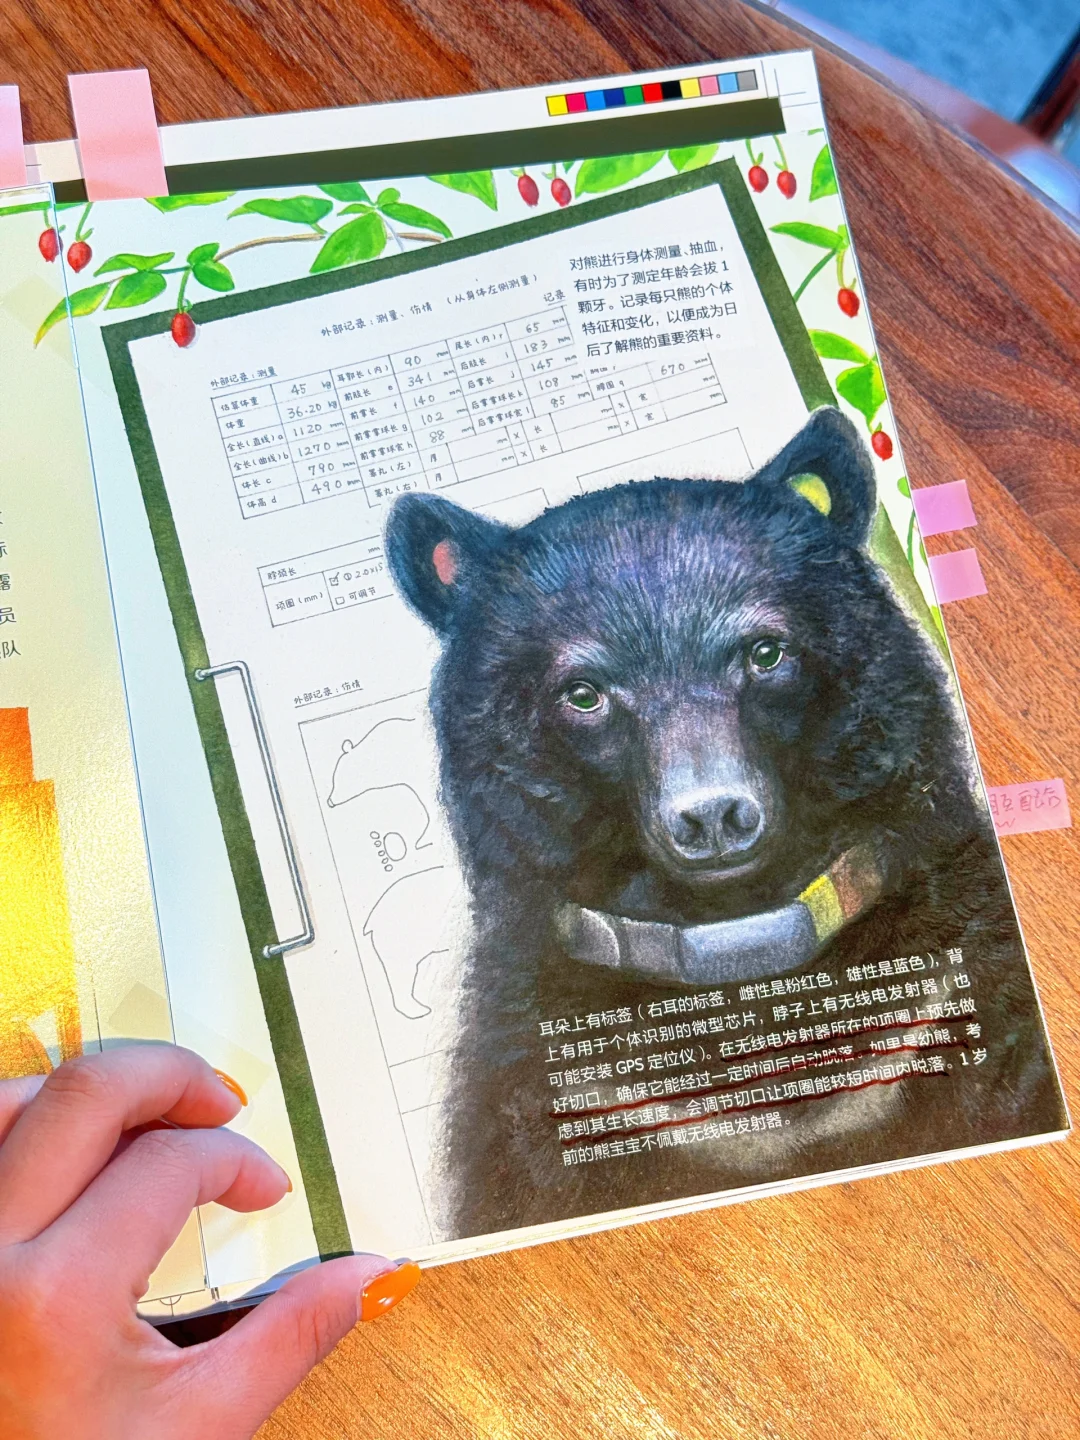 对熊进行身体测量、抽血,
有时为了测定年龄会拔 1
颗牙。记录每只熊的个体
特征和变化，以便成为日
后了解熊的重要资料。
外部记录：测量、伤情 （从身体左侧测量）
记录
外部记录：测量
估算体重 45 kg 耳郭长（内） 90 mm 尾长（内）r 65 mm
体重 36.20 kg 前肢长 e 341 mm 后肢长 i 183 mm
全长（直线）a 1120 mm 前掌长 f 140 mm 后掌长 j 145 mm
全长（曲线）b 1270 mm 前掌掌球长 g 102 mm 后掌掌球长 k 108 mm 脖围 q 670 mm
体长 c 790 mm 前掌掌球宽 h 88 mm 后掌掌球宽 l 85 mm
体高 d 490 mm 睾丸（左） 厚 mm x 长 mm x 宽 mm
睾丸（右） 厚 mm x 长 mm x 宽 mm
脖颈长 mm
项圈（mm） ☑ ① 20x15
□ 可调节
外部记录：伤情
耳朵上有标签（右耳的标签，雌性是粉红色，雄性是蓝色），背
上有用于个体识别的微型芯片，脖子上有无线电发射器（也
可能安装 GPS 定位仪）。在无线电发射器所在的项圈上预先做
好切口，确保它能经过一定时间后自动脱落。如果是幼熊，考
虑到其生长速度，会调节切口让项圈能较短时间内脱落。1 岁
前的熊宝宝不佩戴无线电发射器。
示
露
员
队